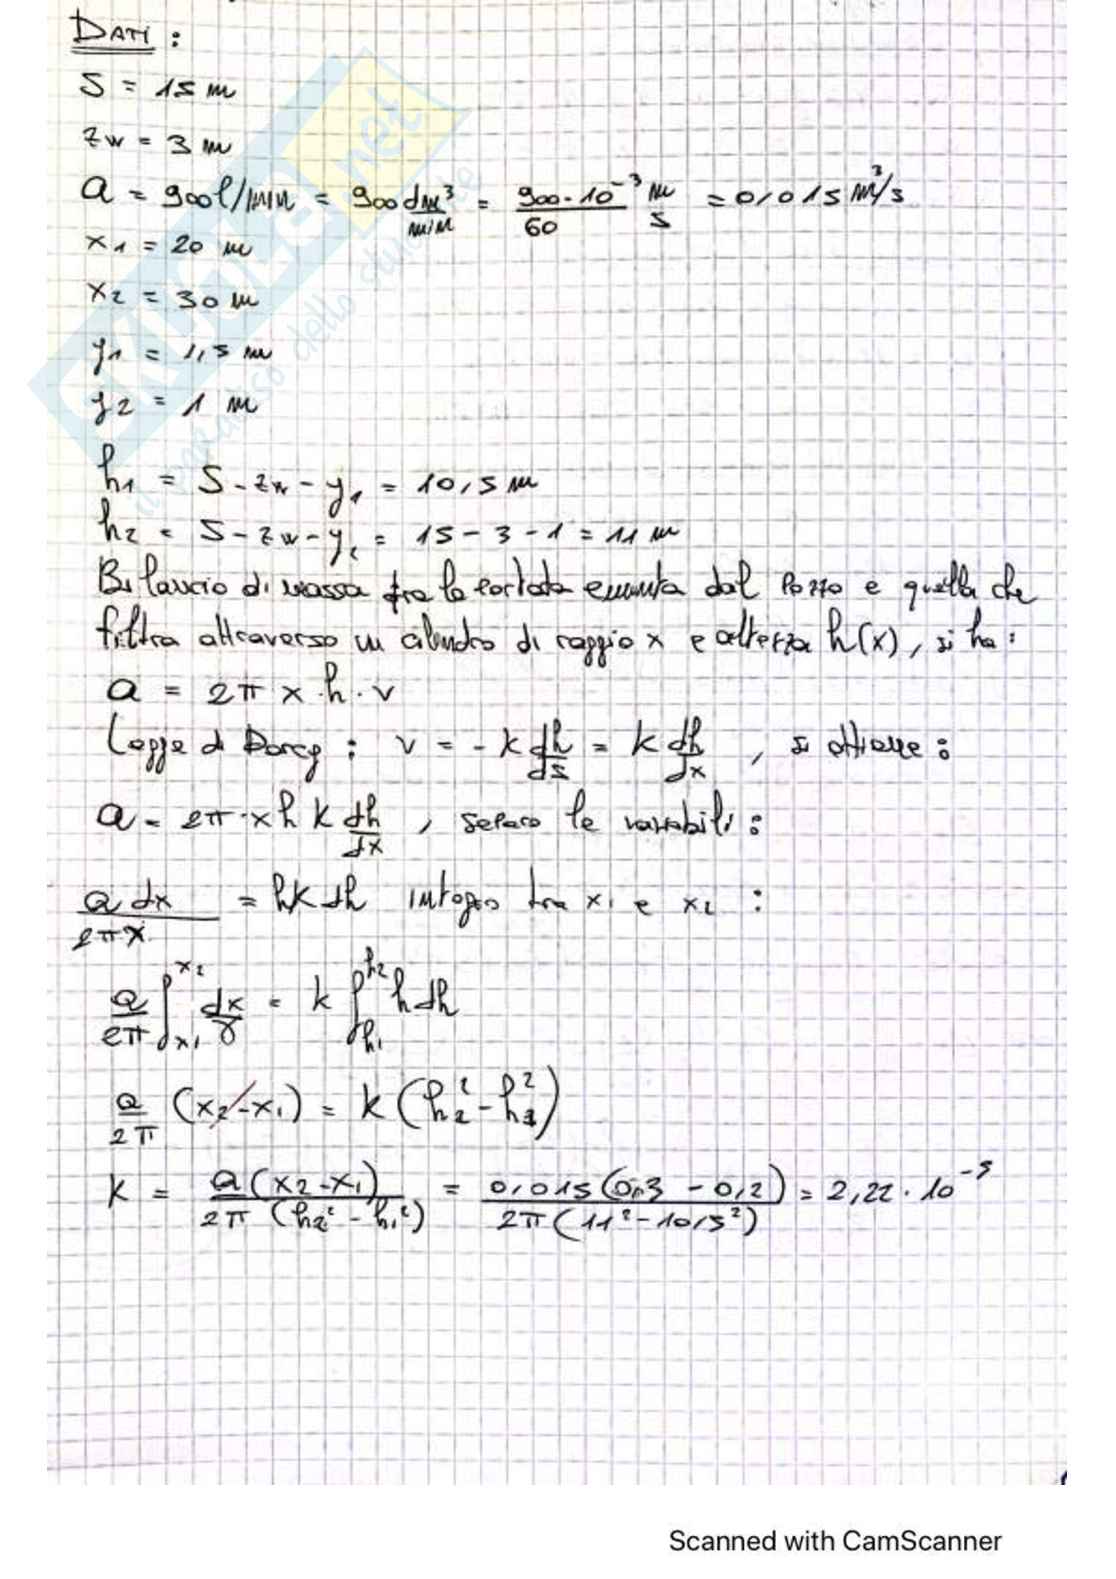 DATI :
S = 15 m
zw = 3 m
Q = 900 l/min = 900 dm³/min = 900·10⁻³/60 m/s = 0,015 m³/s
x1 = 20 m
x2 = 30 m
y1 = 1,5 m
y2 = 1 m
h1 = S - zw - y1 = 10,5 m
h2 = S - zw - y2 = 15 - 3 - 1 = 11 m
Bilancio di massa fra la portata emunta dal Pozzo e quella che
filtra attraverso un cilindro di raggio x e altezza h(x), si ha:
Q = 2π x · h · v
Legge di Darcy : v = -k dh/ds = k dh/dx , si ottiene :
Q = 2π · x h k dh/dx , separo le variabili :
Q dx/2πx = hk dh integro tra x1 e x2 :
Q/2π ∫x1 x2 dx/x = k ∫h1 h2 h dh
Q/2π (x2 - x1) = k (h2² - h1²)
k = Q(x2 - x1)/2π (h2² - h1²) = 0,015(0,3 - 0,2)/2π(11² - 10,5²) = 2,22 · 10⁻⁵
SKUOLA.net
il paradiso dello studente
Scanned with CamScanner